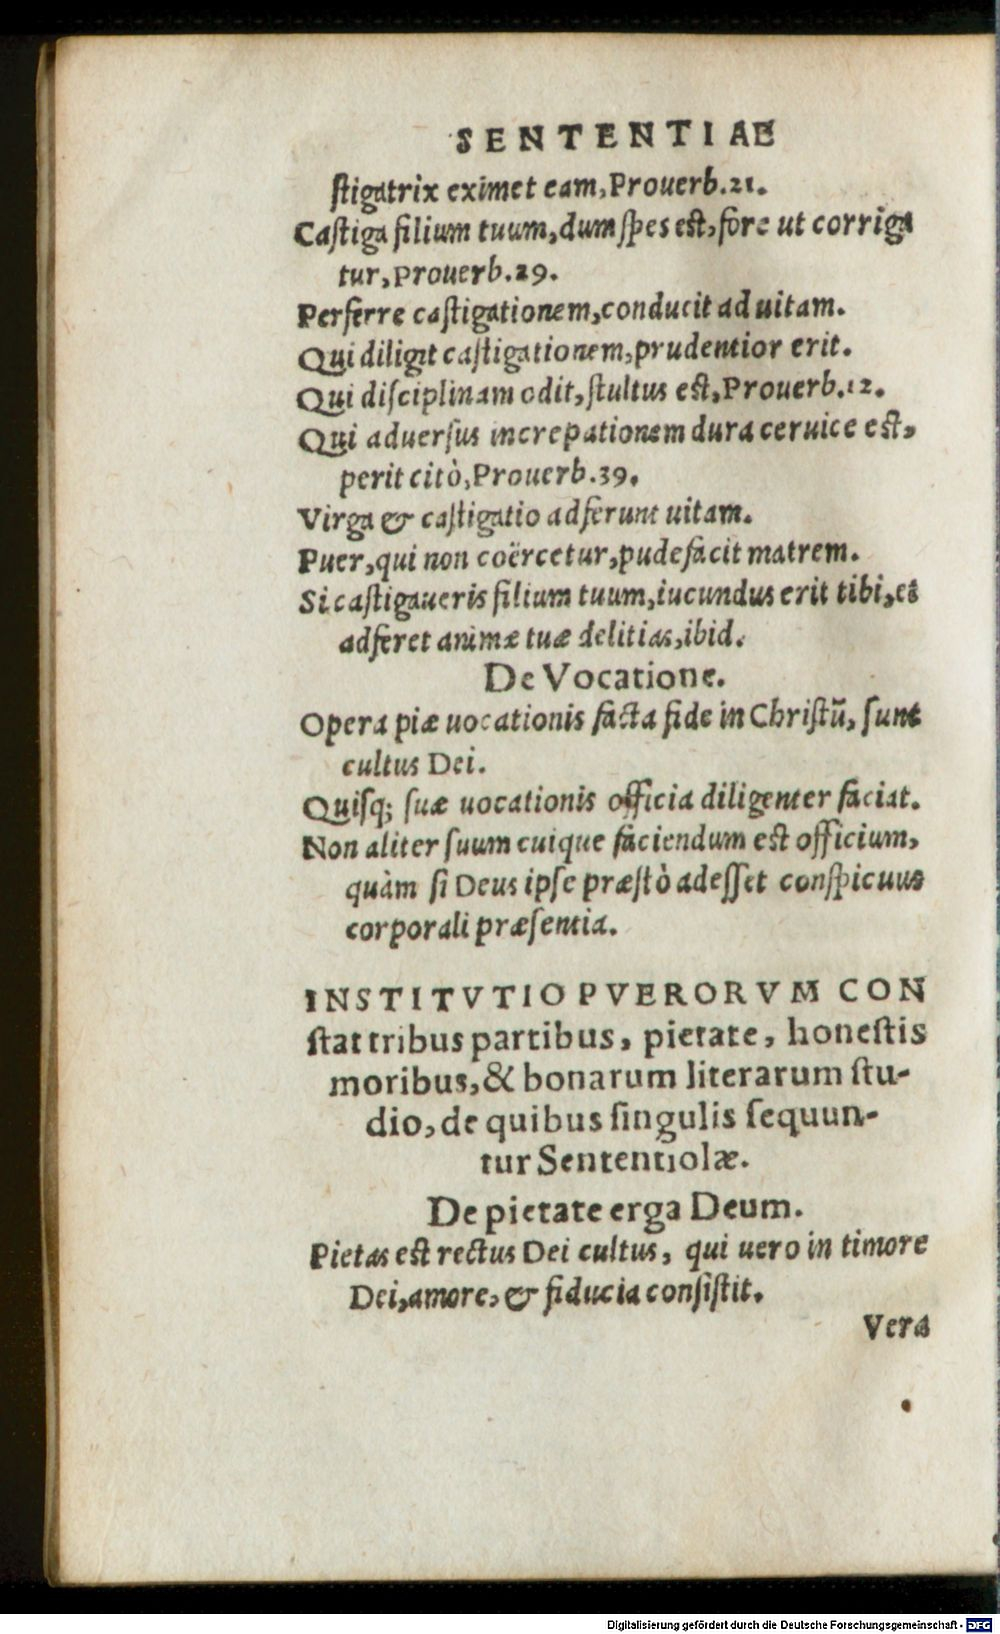 SENTENTIAE
ſtigatrix eximet eam, Prouerb.21.
Caſtiga filium tuum, dum ſpes eſt, fore ut corriga
tur, Prouerb.29.
Perferre caſtigationem, conducit ad uitam.
Qui diligit caſtigationem, prudentior erit.
Qui diſciplinam odit, ſtultus eſt, Prouerb.12.
Qui aduerſus increpationem dura ceruice eſt,
perit citò, Prouerb.39.
Virga & caſtigatio adferunt uitam.
Puer, qui non coërcetur, pudefacit matrem.
Si caſtigaueris filium tuum, iucundus erit tibi, et
adferet animæ tuæ delitias, ibid.
De Vocatione.
Opera piæ uocationis facta fide in Chriſtū, ſunt
cultus Dei.
Quiſq; ſuæ uocationis officia diligenter faciat.
Non aliter ſuum cuique faciendum eſt officium,
quàm ſi Deus ipſe præſtò adeſſet conſpicuus
corporali præſentia.
INSTITVTIO PVERORVM CON
ſtat tribus partibus, pietate, honeſtis
moribus, & bonarum literarum ſtu-
dio, de quibus ſingulis ſequun-
tur Sententiolæ.
De pietate erga Deum.
Pietas eſt rectus Dei cultus, qui uero in timore
Dei, amore, & fiducia conſiſtit.
Vera
Digitalisierung gefördert durch die Deutsche Forschungsgemeinschaft - DFG